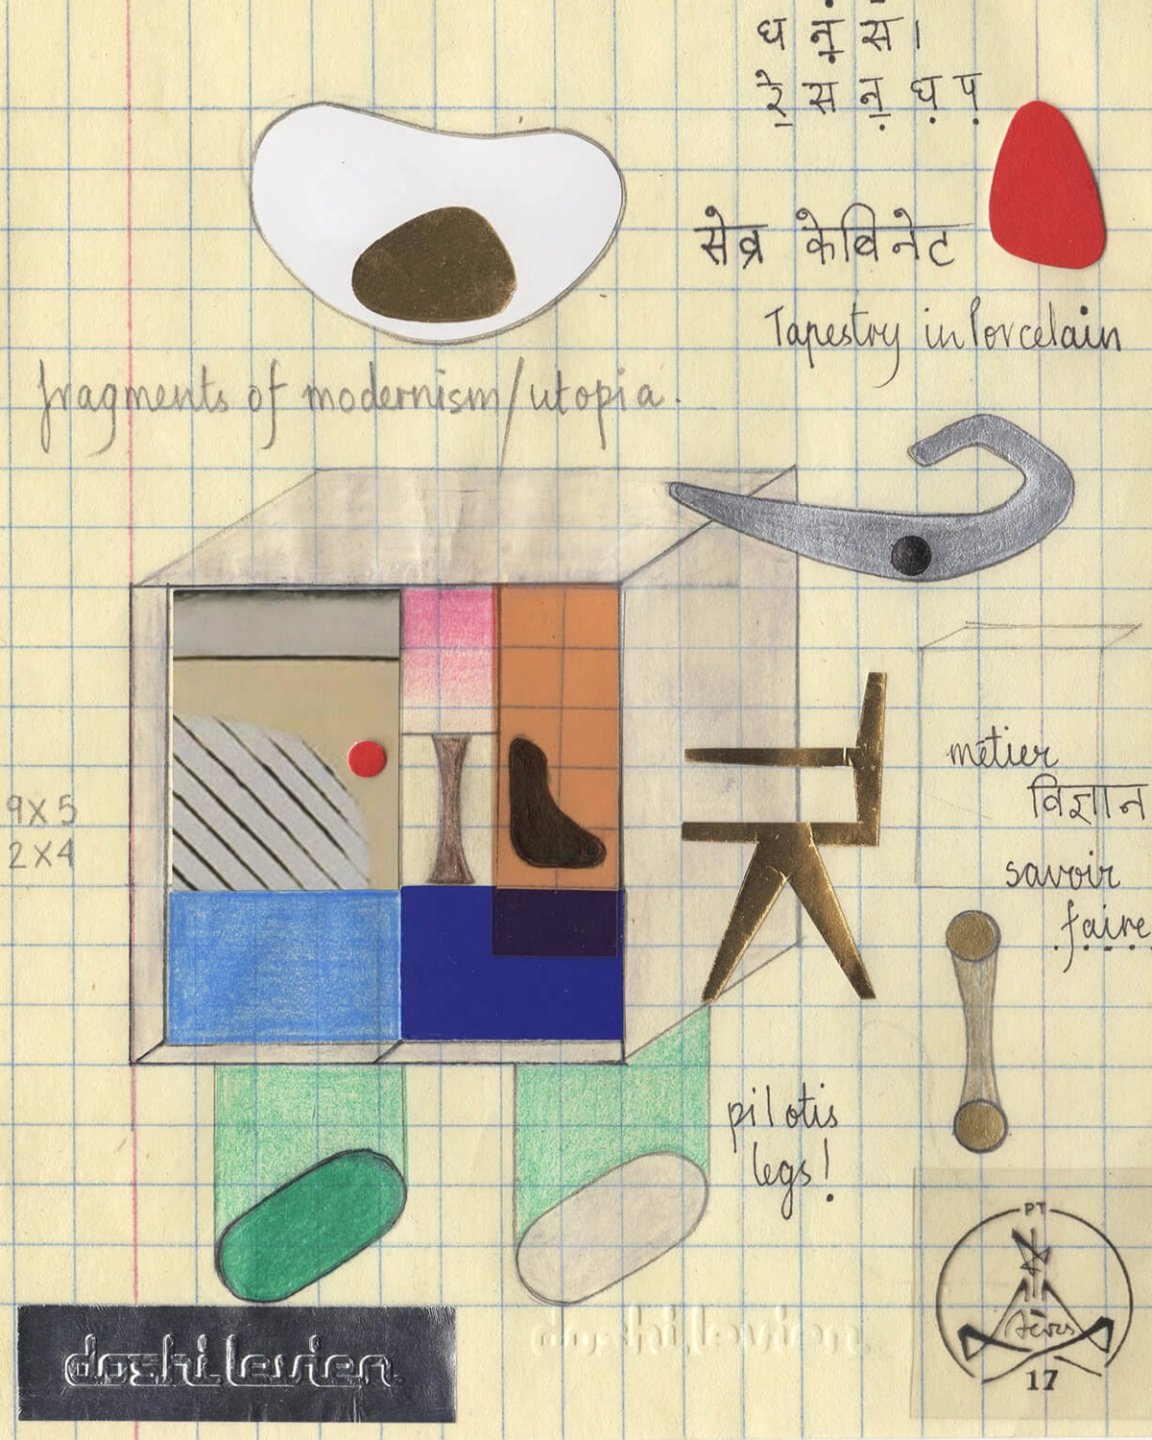 ध ऩ स।
रे॒ स ऩ ध़ प़
सेव्र केबिनेट
Tapestry in Porcelain
fragments of modernism/utopia.
9X5
2X4
métier
विज्ञान
savoir
faire....
pilotis
legs!
doshi levien
doshi levien
PT
Sèvres
17